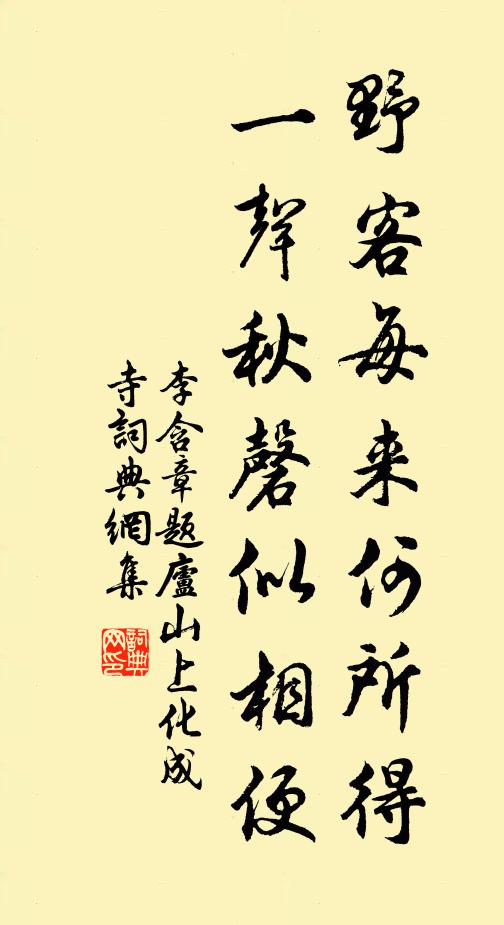 野客每来何所得
一聲秋磬似相便
李含章题廬山上化成
寺詞典網集
詞典网印